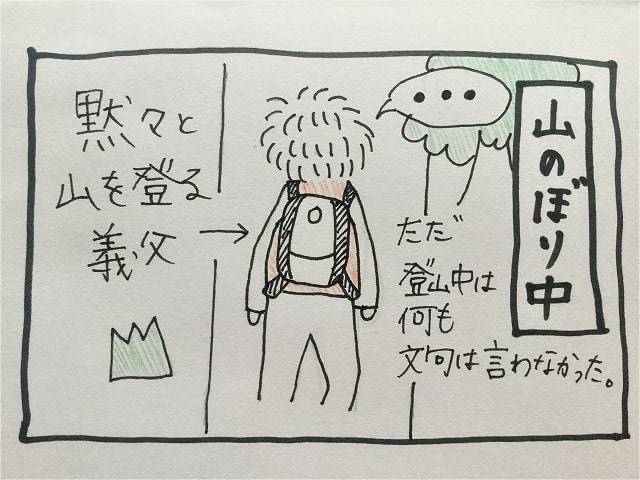 山のぼり中
・・・
ただ
登山中は
何も
文句は言わなかった。
黙々と
山を登る
義父